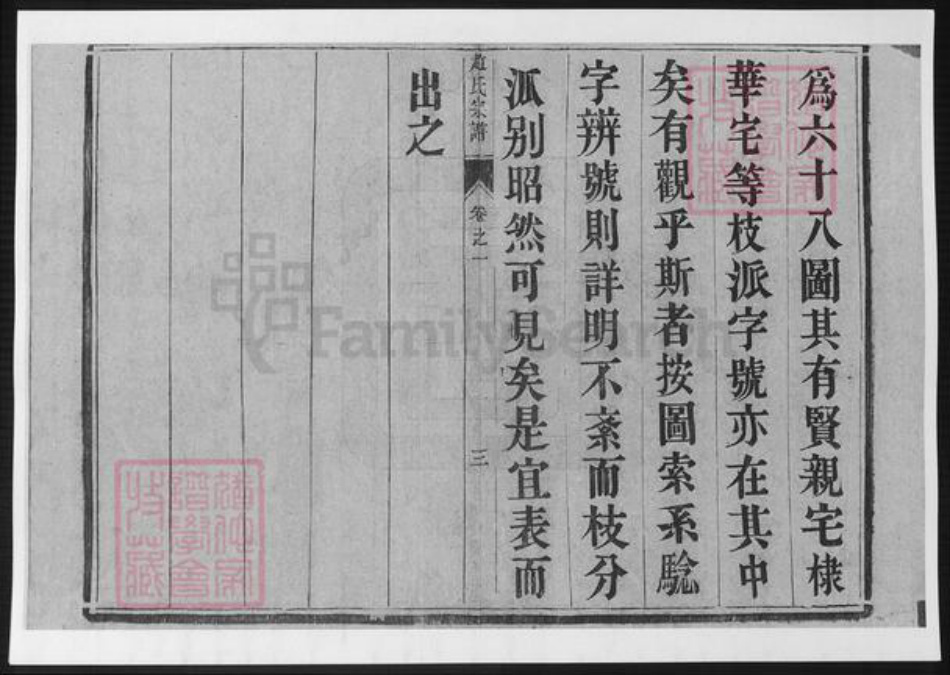 爲六十八圖其有賢親宅棣
華宅等枝派字號亦在其中
矣有觀乎斯者按圖索系騐
字辨號則詳明不紊而枝分
派别昭然可見矣是宜表而
出之
趙氏宗譜 卷之一 三
FamilySearch